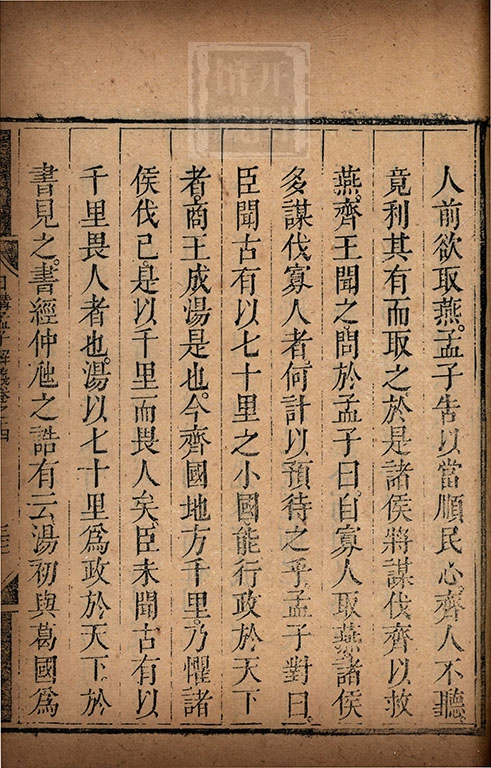 人前欲取燕。孟子告以當順民心。齊人不聽。
竟利其有而取之。於是諸侯將謀伐齊以救
燕。齊王聞之。問於孟子曰。自寡人取燕。諸侯
多謀伐寡人者。何計以預待之乎。孟子對曰。
臣聞古有以七十里之小國。能行政於天下
者。商王成湯是也。今齊國地方千里。乃懼諸
侯伐已。是以千里而畏人矣。臣未聞古有以
千里畏人者也。湯以七十里爲政於天下。於
書見之。書經仲虺之誥有云湯初與葛國爲
日講孟子解義卷之十四